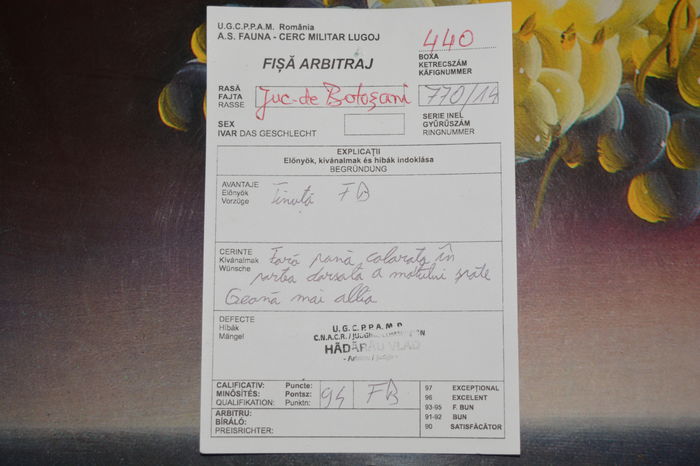 U.G.C.P.P.A.M. România
A.S. FAUNA - CERC MILITAR LUGOJ
440
BOXA
KETRECSZÁM
KÄFIGNUMMER
FIȘĂ ARBITRAJ
RASĂ
FAJTA
RASSE
Juc. de Botoșani
770/14
SERIE INEL
GYŰRŰSZÁM
RINGNUMMER
SEX
IVAR DAS GESCHLECHT
EXPLICAȚII
Előnyök, kívánalmak és hibák indoklása
BEGRÜNDUNG
AVANTAJE
Előnyök
Vorzüge
Ținută FB
CERINTE
Kívánalmak
Wünsche
Fară pană colorata în
partea dorsală a moțului spate
Geană mai albă
DEFECTE
Hibák
Mängel
U.G.C.P.P.A.M.R
C.N.A.C.R. / JUDGING COMMISSION
HĂDĂRĂU VLAD
CALIFICATIV:
MINŐSÍTÉS:
QUALIFIKATION:
Puncte:
Pontsz:
Punktn:
94 FB
97 EXCEPȚIONAL
96 EXCELENT
93-95 F. BUN
91-92 BUN
90 SATISFĂCĂTOR
ARBITRU:
BÍRÁLÓ:
PREISRICHTER: